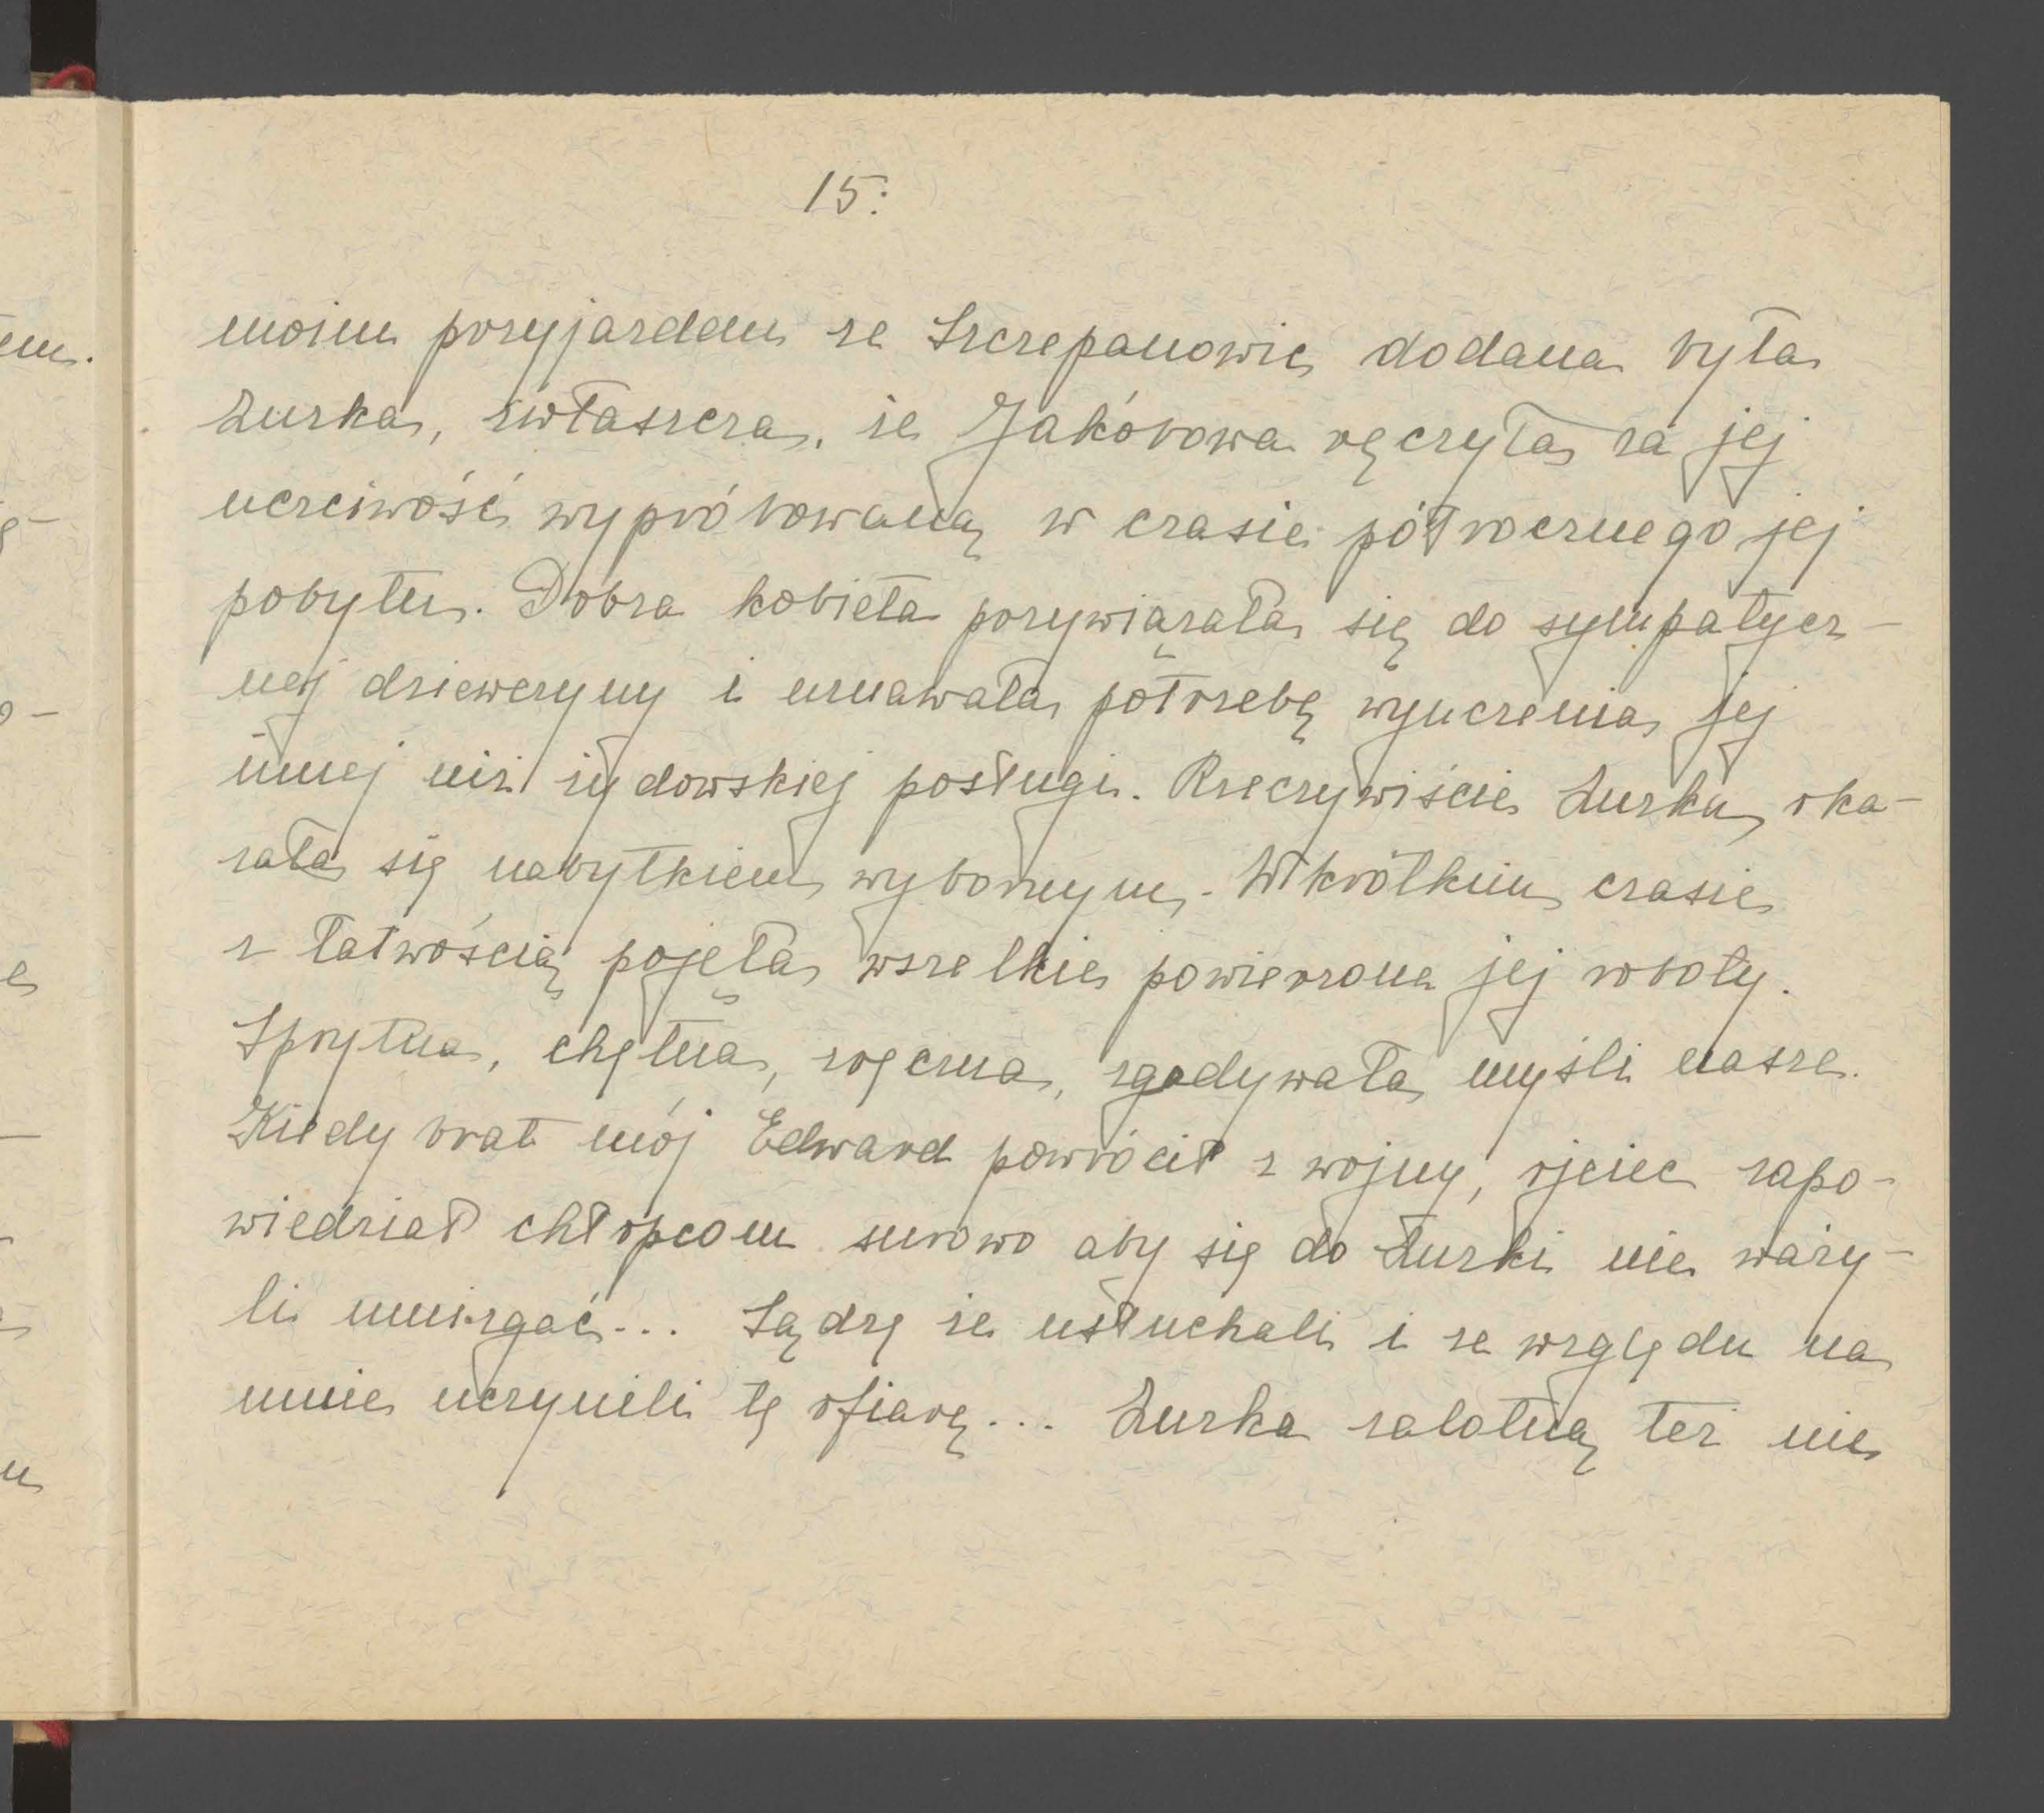 15.
moim przyjazdem ze Szczepanowic dodana była
Zuzka, zwłaszcza, że Jakóbowa ręczyła za jej
uczciwość wypróbowaną w czasie półrocznego jej
pobytu. Dobra kobieta przywiązała się do sympatycz-
nej dziewczyny i uznawała potrzebę wyuczenia jej
innej niż żydowskiej posługi. Rzeczywiście Zuzka oka-
zała się nabytkiem wybornym. W krótkim czasie
z łatwością pojęła wszelkie powierzone jej roboty.
Sprytna, chętna, zręczna, zgadywała myśli nasze.
Kiedy brat mój Edward powrócił z wojny, ojciec zapo-
wiedział chłopcom surowo aby się do Zuzki nie waży-
li umizgać... Sądzę że usłuchali i ze względu na
mnie uczynili tę ofiarę... Zuzka zalotną też nie